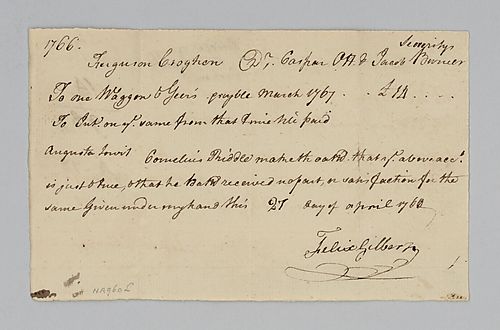 1766.
Securitys
Ferguson Croghen Dr. Caspar Ott & Jacob
To one Waggon & Geers payble March 1767 . . £14 . . . .
To Int. on ye. same from that time till paid
Augusta Towit Cornelius Riddle maketh oath that ye. above acct.
is just & true, & that he hath received no part, or satisfaction for the
same Given under my hand this 27 day of april 1768
Felix Gilbert